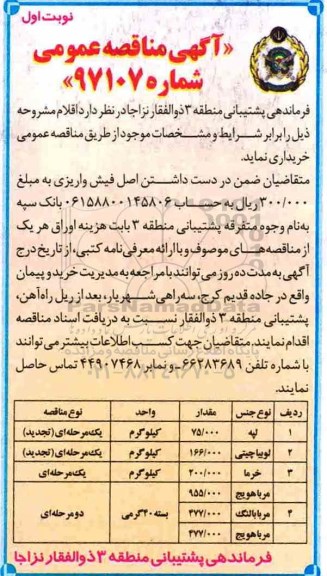 نوبت اول
«آگهی مناقصه عمومی
شماره ۹۷۱۰۷»
فرماندهی پشتیبانی منطقه ۳ ذوالفقار نزاجا در نظر دارد اقلام مشروحه
ذیل را برابر شرایط و مشخصات موجود از طریق مناقصه عمومی
خریداری نماید.
متقاضیان ضمن در دست داشتن اصل فیش واریزی به مبلغ
۳۰۰/۰۰۰ ریال به حساب ۰۶۱۵۸۸۰۰۱۴۵۸۰۶ بانک سپه
به‌نام وجوه متفرقه پشتیبانی منطقه ۳ بابت هزینه اوراق هر یک
از مناقصه‌های موصوف و با ارائه معرفی‌نامه کتبی، از تاریخ درج
آگهی به مدت ده روز می‌توانند با مراجعه به مدیریت خرید و پیمان
واقع در جاده قدیم کرج، سه‌راهی شهریار، بعد از ریل راه‌آهن،
پشتیبانی منطقه ۳ ذوالفقار نسبت به دریافت اسناد مناقصه
اقدام نمایند. متقاضیان جهت کسب اطلاعات بیشتر می‌توانند
با شماره تلفن ۶۶۲۸۳۶۸۹ـ و نمابر ۴۴۹۰۷۴۶۸ تماس حاصل
نمایند.
ردیف نوع جنس مقدار واحد نوع مناقصه
۱ لپه ۷۵/۰۰۰ کیلوگرم یک‌مرحله‌ای (تجدید)
۲ لوبیاچیتی ۱۶۶/۰۰۰ کیلوگرم یک‌مرحله‌ای (تجدید)
۳ خرما ۲۰۰/۰۰۰ کیلوگرم یک‌مرحله‌ای
مرباهویج ۹۵۵/۰۰۰
۴ مربابالنگ ۴۷۷/۰۰۰ بسته ۴۰گرمی دومرحله‌ای
مرباهویج ۴۷۷/۰۰۰
فرماندهی پشتیبانی منطقه ۳ ذوالفقار نزاجا